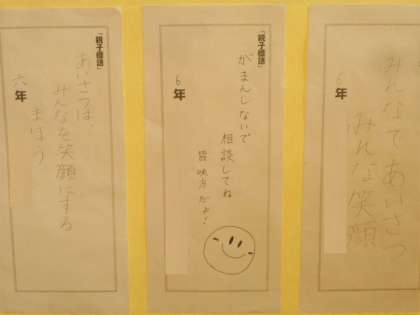 「親子標語」
みんなで あいさつ
みんな笑顔
6年
「親子標語」
がまんしないで
相談してね
皆味方だよ!
6年
「親子標語」
あいさつは、
みんなを笑顔にする
まほう
六年